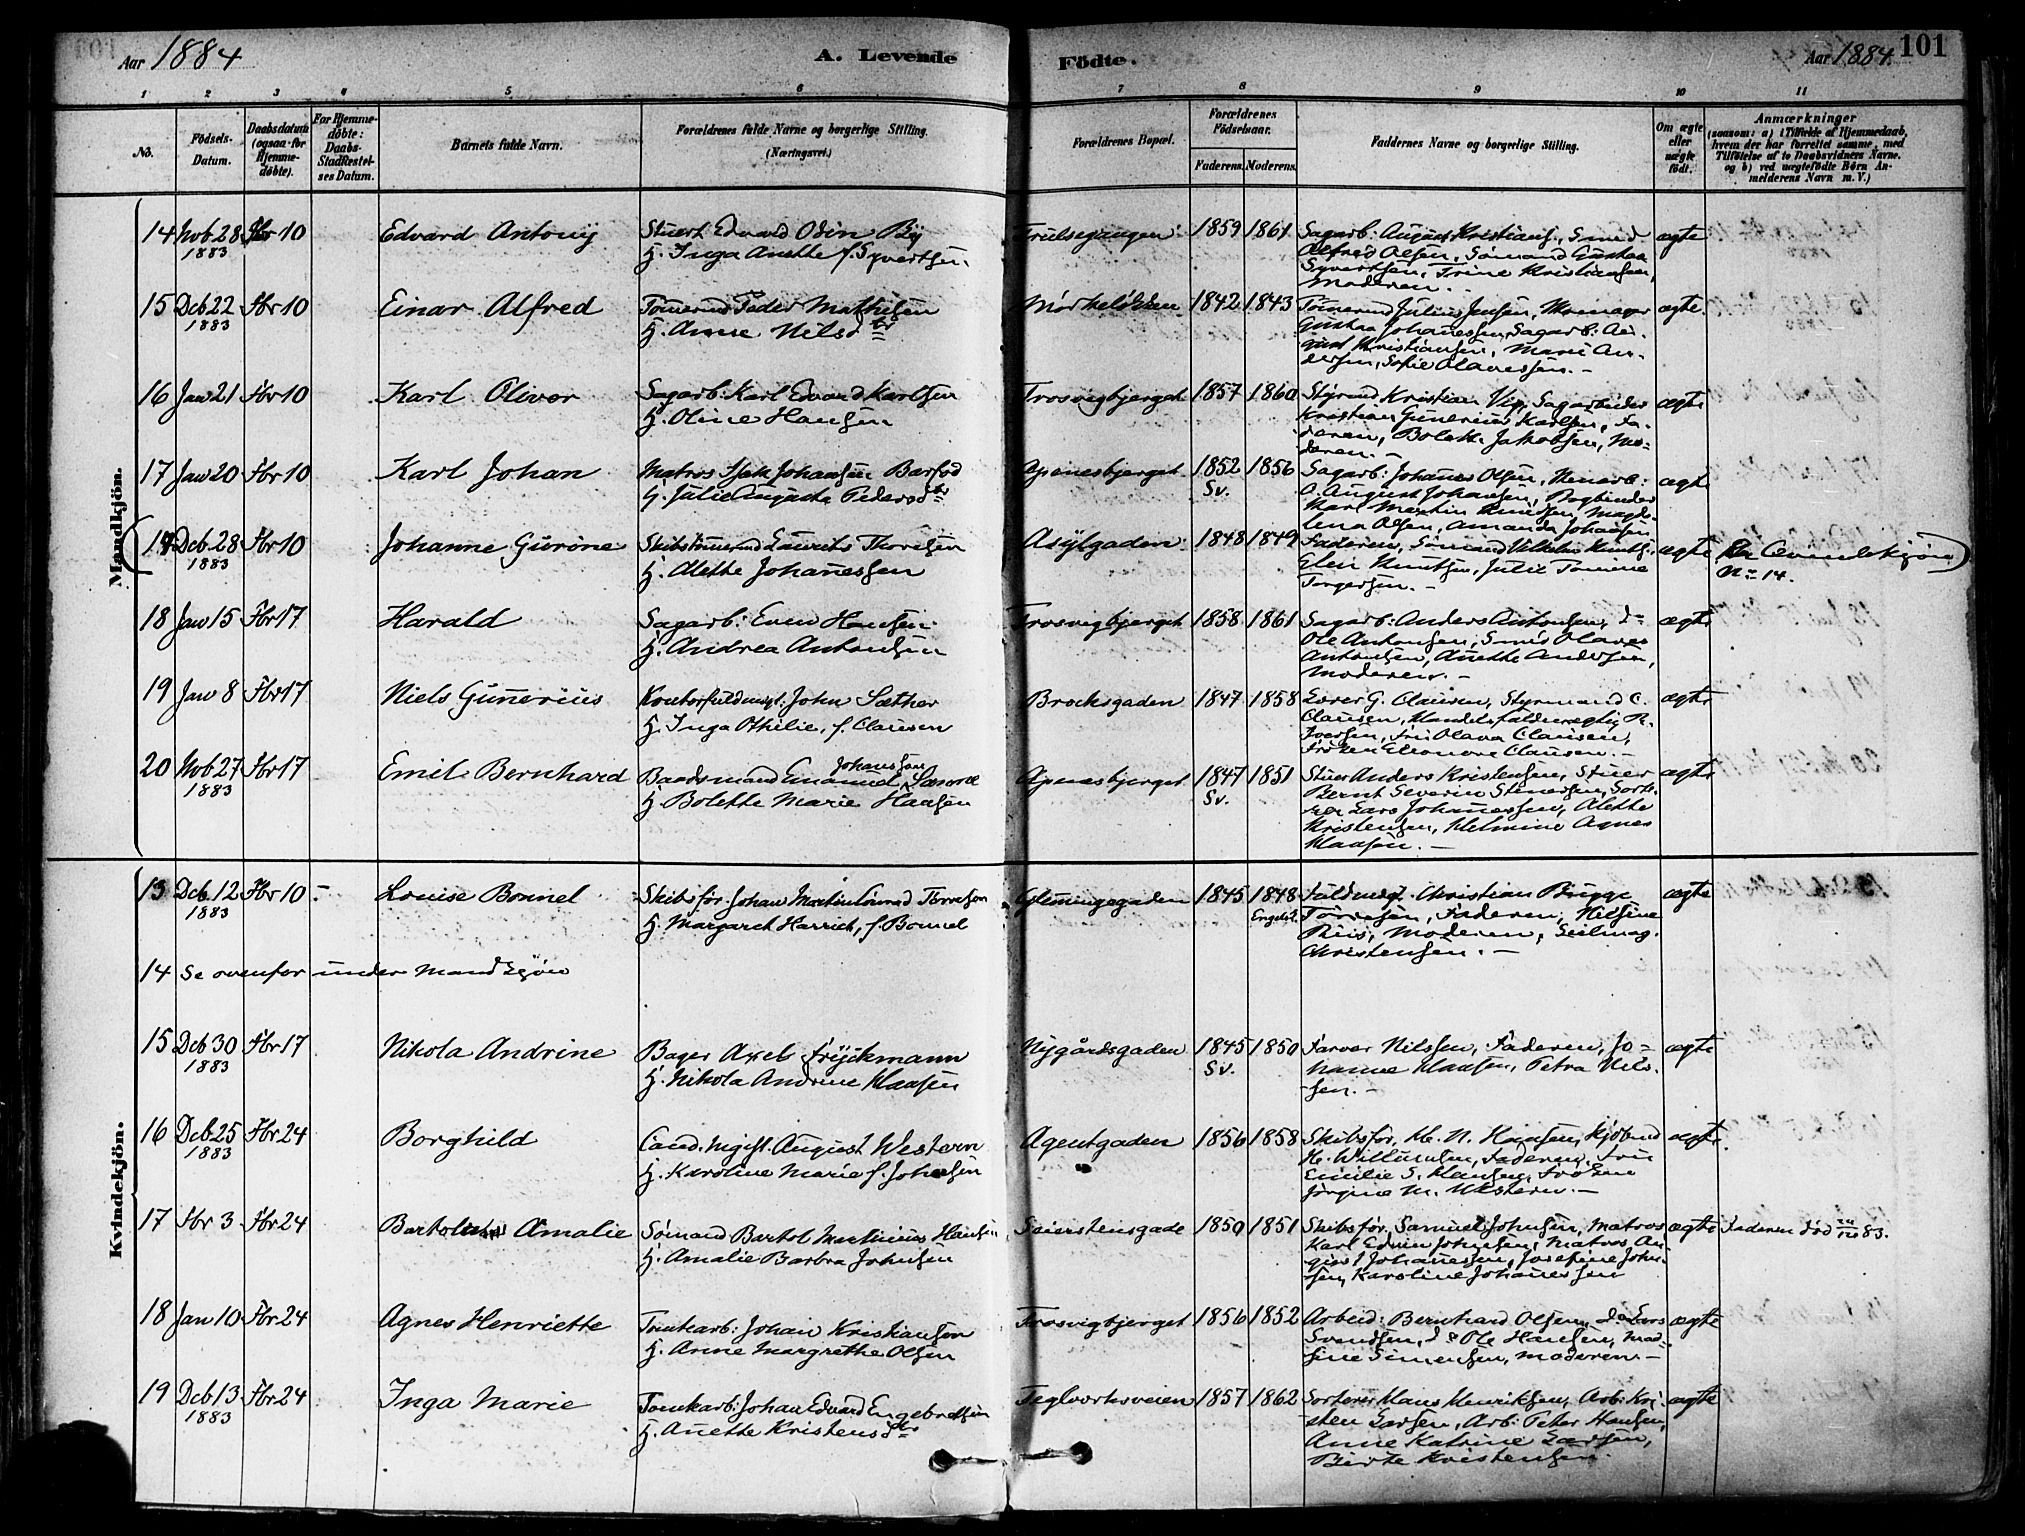 Aar 1884
A. Levende
Födte.
Aar 1884.
101
1 2 3 4 5 6 7 8 9 10 11
No.
Födsels-Datum.
Daabsdatum (ogsaa for Hjemmedöbte).
For Hjemmedöbte: Daabs-Stadfæstelses Datum.
Barnets fulde Navn.
Forældrenes fulde Navne og borgerlige Stilling. (Næringsvei.)
Forældrenes Bopæl.
Forældrenes Födselsaar.
Faderens. Moderens.
Faddernes Navne og borgerlige Stilling.
Om ægte eller uægte födt.
Anmærkninger
(saasom: a) i Tilfælde af Hjemmedaab, hvem der har forrettet samme, med Tilföielse af to Daabsvidners Navne. og b) ved uægtefödte Börn Anmelderens Navn m. V.)
Mandkjön.
14 Nob 28 1883 Fbr 10 Edvard Antony
Stuert Edvard Odin By
H. Inga Anette f. Syvertsen
Trulsegangen 1859 1861
Sagarb: August Kristians., Smed
Alfred Olsen, Sömand Gustav
Syvertsen, Trine Kristiansen,
Moderen. ægte
15 Deb 22 1883 Fbr 10 Einar Alfred
Tömermd Peder Mathisen
H. Anne Nilsdtr
Mörkeløkken 1842 1843
Tömermd Julius Jensen,
Gustav Johannessen, Sagarb: August Kristiansen, Marie Andersen, Sofie Olavessen. ægte
16 Jan 21 Fbr 10 Karl Oliver
Sagarb: Karl Edvard Karlsen
H. Oline Hansen
Trosvigbjerget 1857 1860
Styrmd Kristian Vig, Sagarbeider
Kristian Gunerius Karlsen, Faderen, Bolette Jakobsen, Moderen. ægte
17 Jan 20 Fbr 10 Karl Johan
Matros Isak Johansen Barfod
H. Julie Augusta Pedersdtr
Apenesbjerget 1852 Sv. 1856
Sagarb: Johanes Olsen,
A. August Johansen, Bogbinder
Karl Martin Knudsen, Magdalena Olsen, Amanda Johansen ægte
14 Deb 28 1883 Fbr 10 Johanne Gurine
Skibstömermd Laurits Thoresen
H. Alette Johanessen
Asylgaden 1848 1849
Faderen, Sömand Vilhelm Knuts.
Elen Knutsen, Julie Tomine
Torgersen. ægte
Kvindekjön
No 14.
18 Jan 15 Fbr 17 Harald
Sagarb: Even Hansen
H. Andrea Antonsen
Trosvigbjerget 1858 1861
Sagarb: Anders Antonsen, do
Ole Antonsen, Smed Olaves
Antonsen, Anette Andersen,
Moderen. ægte
19 Jan 8 Fbr 17 Niels Gunerius
Kontorfuldmgt: John Sæther
H. Inga Othilie, f. Clausen
Brochsgaden 1847 1858
Lærer G. Clausen, Styrmand C.
Clausen, Handelsfuldmægtig R.
Iversen, Fru Olava Clausen,
Fröken Eleonore Clausen. ægte
20 Nob 27 1883 Fbr 17 Emil Bernhard
Johansson
Baadsmand Emanuel
H. Bolette Marie Hansen
Apenesbjerget 1847 Sv. 1851
Stuer Anders Kristensen, Stuer
Bernt Severin Stenersen, Sorterer Lars Johanessen, Alette
Kristensen, Helmine Agnes
Hansen. ægte
Kvindekjön.
13 Deb 12 1883 Fbr 10 Louise Bonnel
Skibsför. Johan Martin Conrad Törresen
H. Margaret Harriet, f. Bonnel
Glemmingegaden 1845 1848 Engelsk.
Fuldmægt. Christian Brygge
Törresen, Faderen, Nilsine
Riis, Moderen,
Christensen. ægte
14 Se ovenfor under Mandkjön
15 Deb 30 1883 Fbr 17 Nikola Andrine
Bager Axel Fryckmann
H. Nikola Andrine Hansen
Nygårdsgaden 1845 Sv. 1850
Farver Nilssen, Faderen, Johanne Hansen, Petra Nilssen. ægte
16 Deb 25 1883 Fbr 24 Borghild
Cand. mgist. August Western
H. Karoline Marie f. Johnsen
Agentgaden 1856 1858
Skibsför. H. N. Hansen, Kjöbmd
H. Willumsen, Faderen, Fru
Emilie S. Hansen, Fröken
Jörgine M. Western. ægte
17 Fbr 3 Fbr 24 Amalie
Sömand Bartol Martinius Hansen
H. Amalie Barbra Johnsen
Seierstensgade 1850 1851
Skibsför. Samuel Johnsen, Matros
Karl Edvin Johnsen, Matros
Johanessen, Josefine Johnsen, Karoline Johanessen ægte
Faderen död 83.
18 Jan 10 Fbr 24 Agnes Henriette
Tomtearb: Johan Kristiansen
H. Anne Margrethe Olsen
Trosvigbjerget 1856 1852
Arbeid: Bernhard Olsen, do Lars
Svendsen, do Ole Hansen,
Simensen, Moderen. ægte
19 Deb 13 1883 Fbr 24 Inga Marie
Tomtearb: Johan Edvard Engebretsen
H. Anette Kristensdtr
Teglverksveien 1857 1862
Sorterer Hans Henriksen, Arb: Kristen Larsen, Arb: Peter Hansen,
Anne Katrine Larsen,
Birte Kristensen. ægte